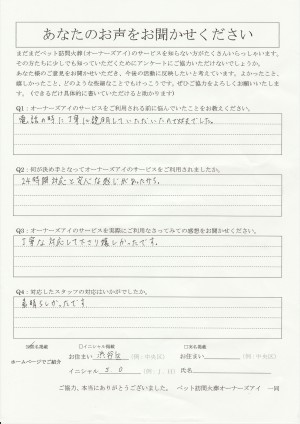 あなたのお声をお聞かせください
まだまだペット訪問火葬(オーナーズアイ)のサービスを知らない方がたくさんいらっしゃいます。
その方たちに少しでも知っていただくためにアンケートにご協力いただけないでしょうか。
あなた様のご意見をお聞かせいただき、今後の活動に反映したいと考えています。よかったこと、
嬉しかったこと、どのような些細なことでもけっこうです。ぜひご協力をよろしくお願いいたします。
(できるだけ具体的に書いていただけると助かります)
Q1:オーナーズアイのサービスをご利用される前に悩んでいたことをお教えください。
電話の時に丁寧に説明していただいたので大丈夫でした。
Q2:何が決め手となってオーナーズアイのサービスをご利用されましたか。
24時間対応と安心な感じがあったから。
Q3:オーナーズアイのサービスを実際にご利用なさってみての感想をお聞かせください。
丁寧な対応して下さり嬉しかったです。
Q4:対応したスタッフの対応はいかがでしたか。
素晴らしかったです。
イニシャル掲載
実名掲載
ホームページでご紹介
お住まい 渋谷区 (例:中央区)
お住まい (例:中央区)
イニシャル S O
氏名
ご協力、本当にありがとうございました。 ペット訪問火葬オーナーズアイ 一同